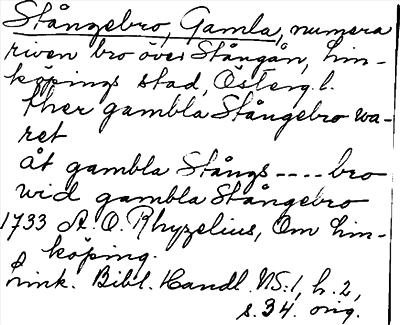 Stångebro, Gamla, numera
riven bro över Stångån, Lin-
köpings stad, Österg. l.
ther gambla Stångebro wa-
ret
åt gambla Stångs----bro
wid gambla Stångebro
1733 A. O. Rhyzelius, Om Lin-
köping.
Link. Bibl. Handl. NS:1, h. 2,
s. 34. orig.